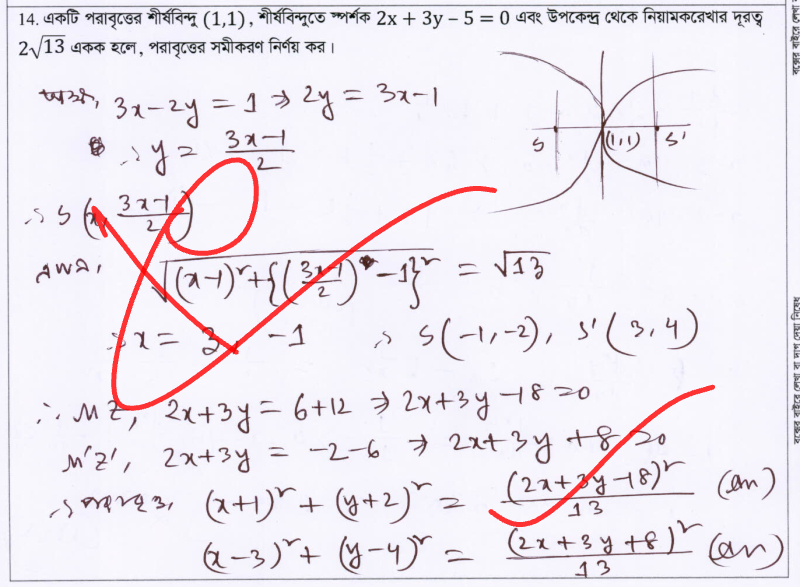 14. একটি পরাবৃত্তের শীর্ষবিন্দু (1,1), শীর্ষবিন্দুতে স্পর্শক 2x + 3y − 5 = 0 এবং উপকেন্দ্র থেকে নিয়ামকরেখার দূরত্ব
2√13 একক হলে, পরাবৃত্তের সমীকরণ নির্ণয় কর।
অক্ষ, 3x−2y = 1 ⇒ 2y = 3x−1
∴ y = (3x−1)/2
S (1,1) S'
∴ S (x, (3x−1)/2)
√((x−1)² + {((3x−1)/2) −1}²) = √13
∴ x = 3, −1 ∴ S(−1,−2), S'(3,4)
∴ MZ, 2x+3y = 6+12 ⇒ 2x+3y−18=0
M'Z', 2x+3y = −2−6 ⇒ 2x+3y+8=0
∴ (x+1)² + (y+2)² = (2x+3y−18)²/13 (Ans)
(x−3)² + (y−4)² = (2x+3y+8)²/13 (Ans)
বক্সের বাইরে লেখা বা দাগ দেয়া নিষেধ